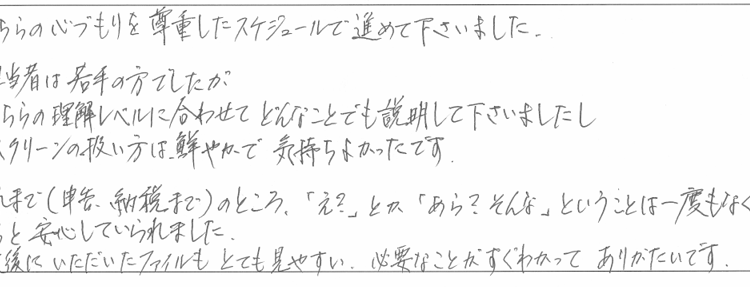 ちらの心づもりを尊重したスケジュールで進めて下さいました。
当者は若手の方でしたが
ちらの理解レベルに合わせて どんなことでも説明して下さいましたし
スクリーンの扱い方は鮮やかで 気持ちよかったです。
れまで(申告、納税まで)のところ、「え?」とか「あら?そんな」ということは一度もなく
っと安心していられました。
後にいただいたファイルも とても見やすい。必要なことがすぐわかって ありがたいです。